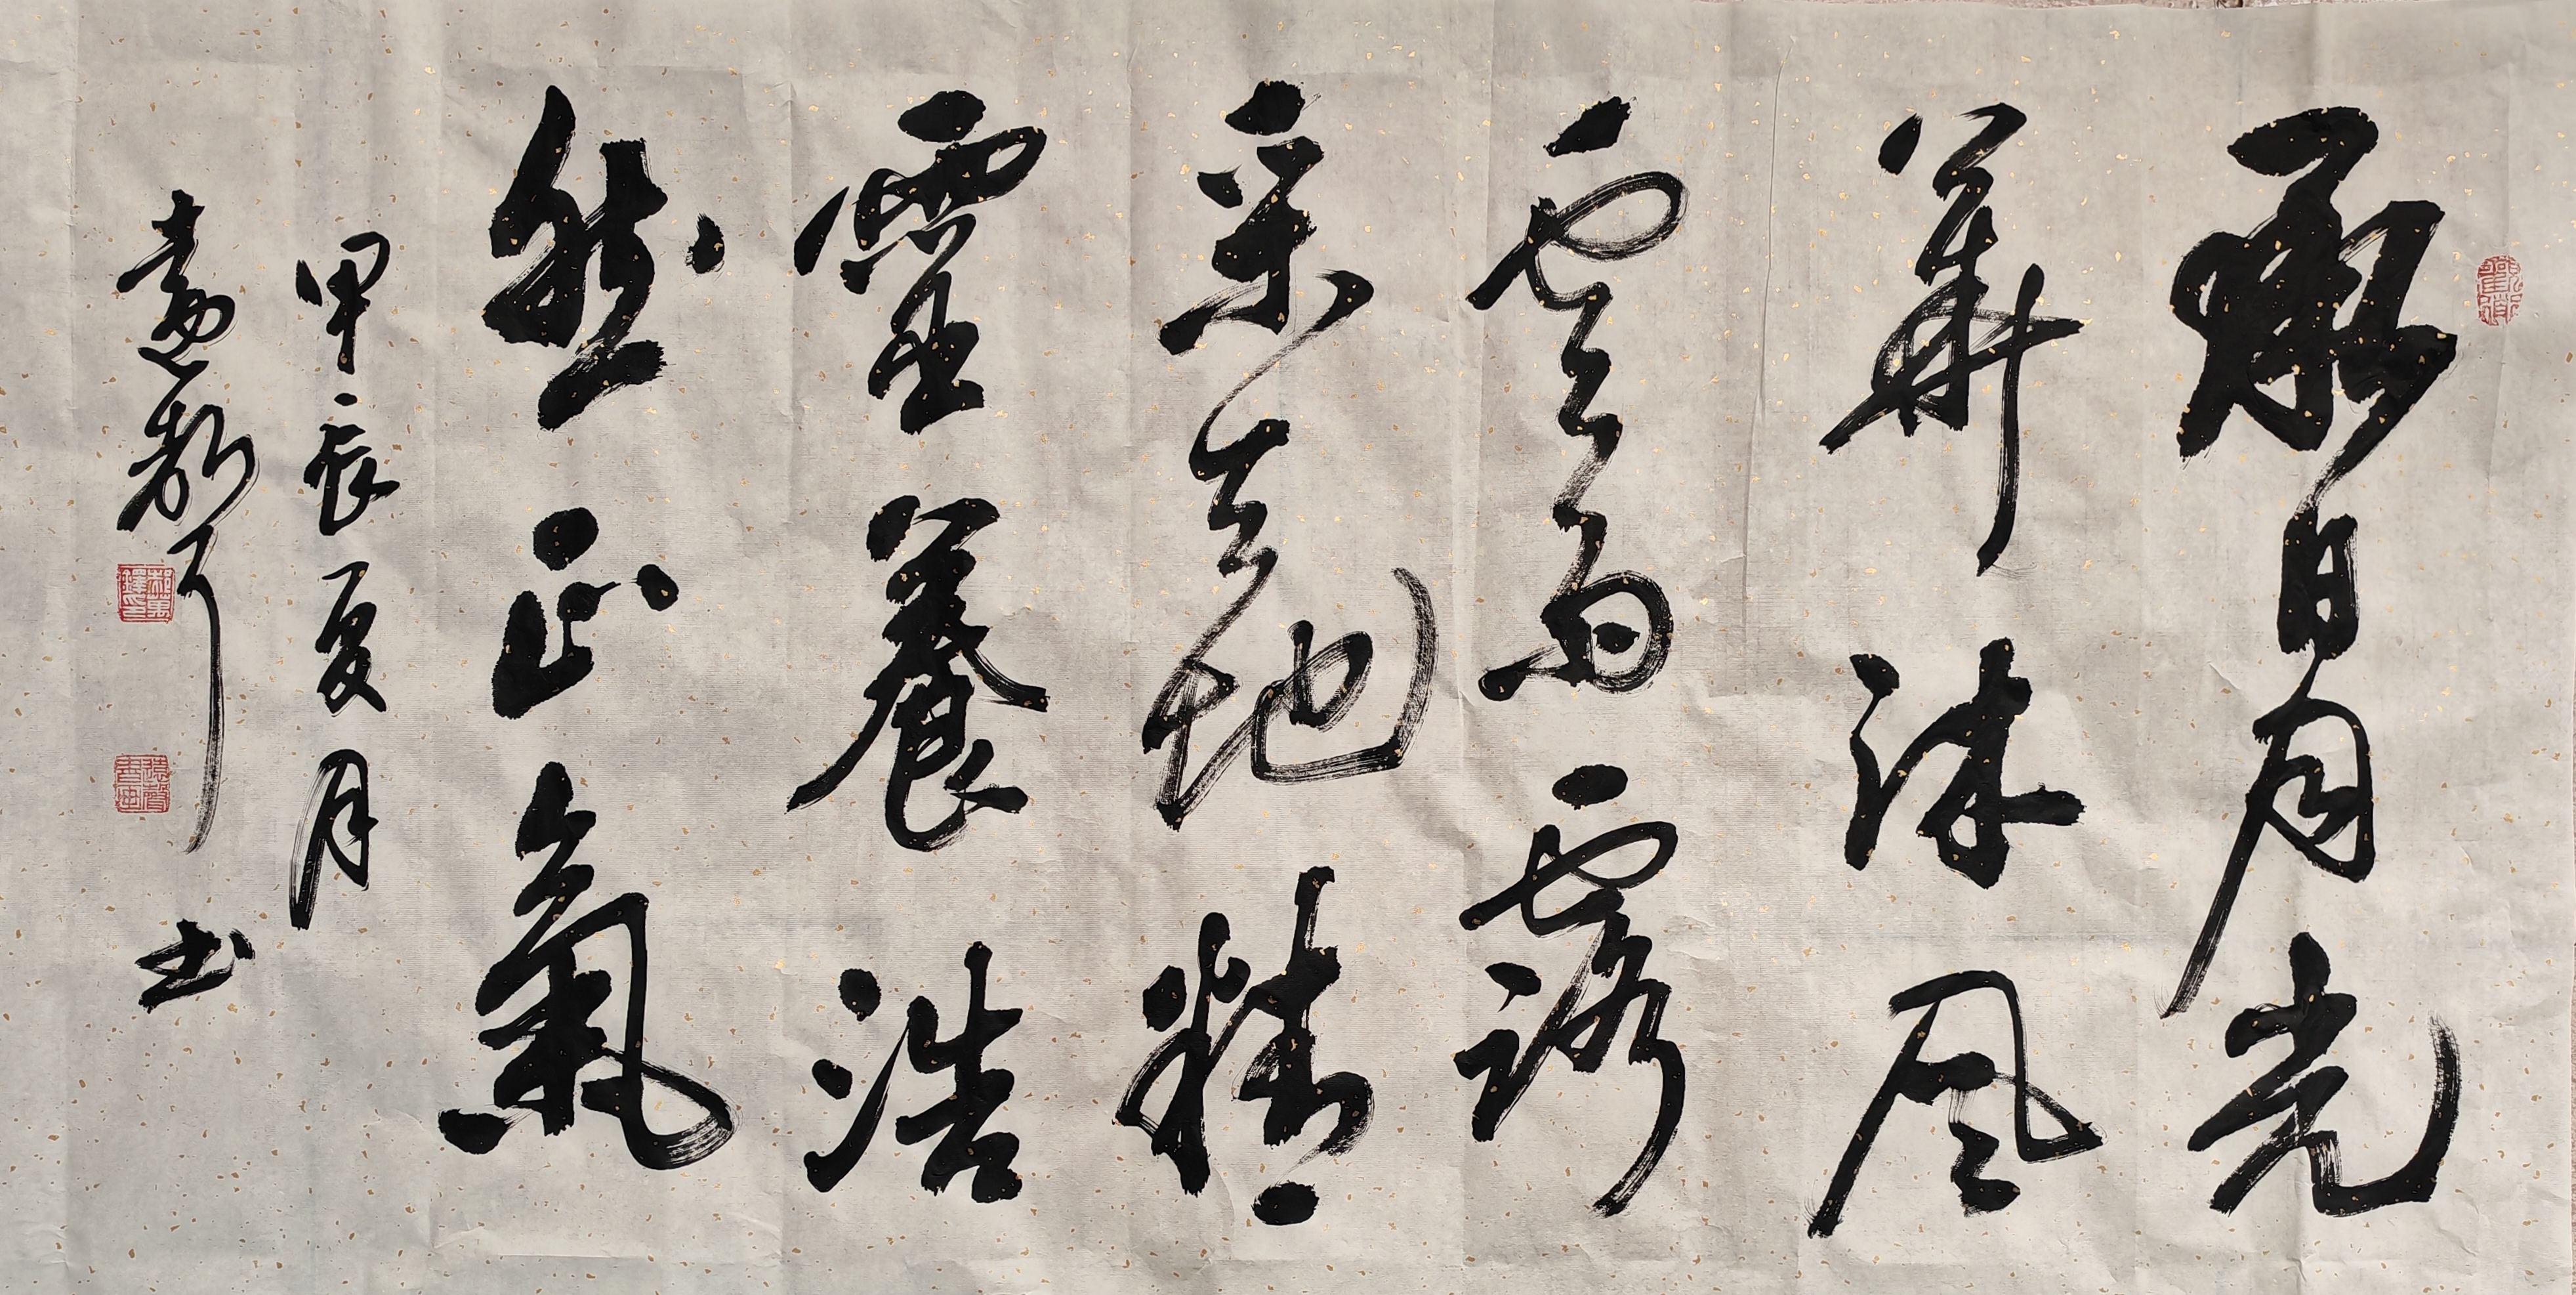 承日月光
華沐風
雲雨露
采天地精
靈養浩
然正氣
甲辰夏月
書